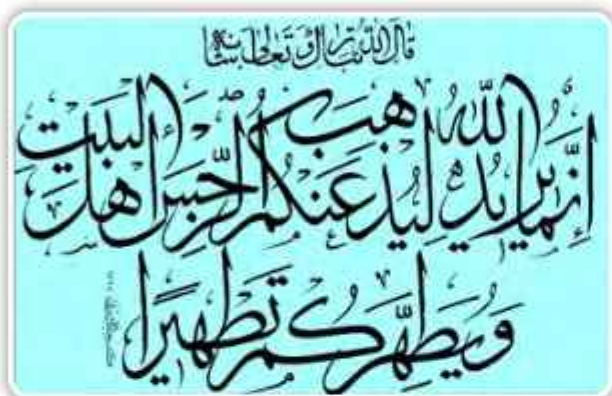 قال الله تبارك وتعالى شأنه
إِنَّمَا يُرِيدُ اللَّهُ لِيُذْهِبَ عَنْكُمُ الرِّجْسَ أَهْلَ الْبَيْتِ
وَيُطَهِّرَكُمْ تَطْهِيرًا